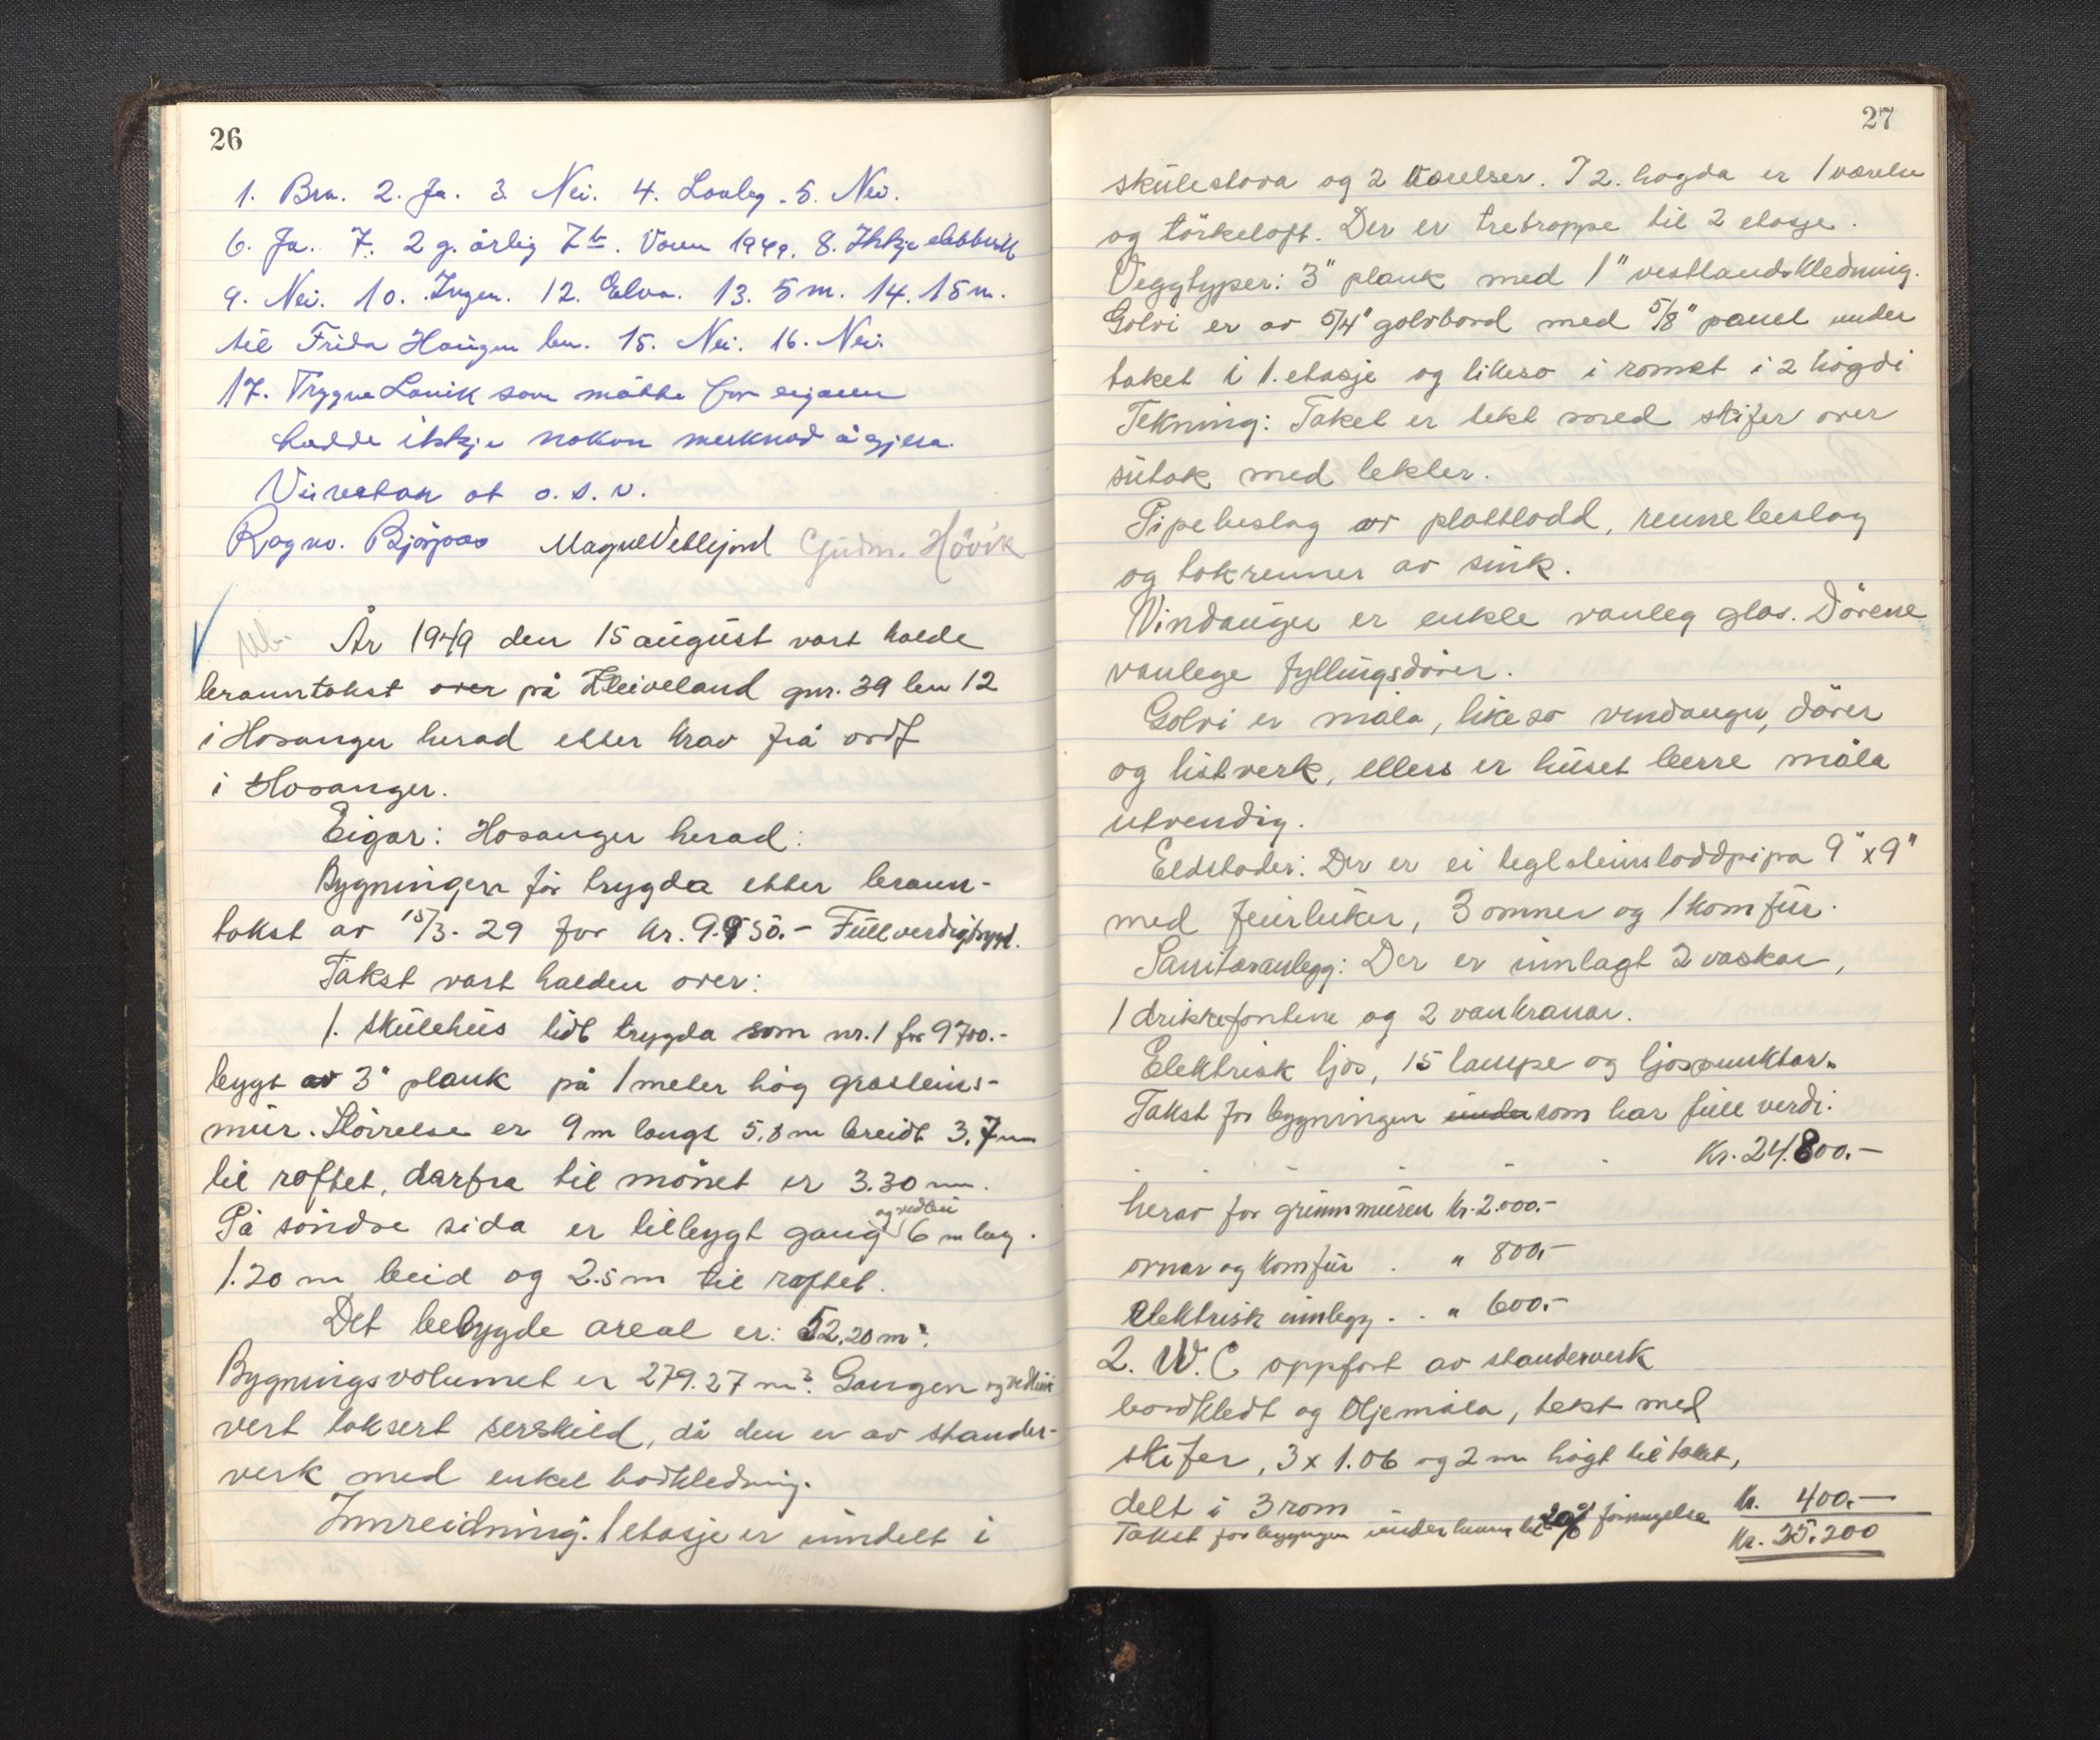 26
1. Bra. 2. Ja. 3. Nei. 4. Lovleg. 5. Nei.
6. Ja. 7. 2 g. årlig Vaun 1949. 8. Ikkje elektrisk
9. Nei. 10. Ingen. 12. Elva. 13. 5 m. 14. 15 m.
til Frida Haugen bu. 15. Nei. 16. Nei.
17. Trygve Lavik som møtte for eigaren
hadde ikkje nokon merknad å gjera.
Vuretak at o.s.v.
Ragnv. Bjørgaas Magne Vetlejord Gudm. Hövik
År 1949 den 15 august vart halde
branntakst over på Kleiveland gnr. 39 bn 12
i Hosanger herad etter krav frå ordf
i Hosanger.
Eigar: Hosanger herad:
Bygningen før trygda etter brann-
takst av 15/3-29 for kr. 9.950.- Fullverditrygd.
Takst vart halden over:
1. Skulehus lidt trygda som nr. 1 for 9700.-
bygt av 3" plank på 1 meter høg grasteins-
mur. Störrelse er 9 m langt 5,8 m breidt 3,7 m
til raftet, darfra til mønet er 3.30 m.
På søndre sida er tilbygt gang og vedbu 6 m lag.
1.20 m breid og 2.5 m til raftet.
Det bebygde areal er: 52,20 m².
Bygningsvolumet er 279.27 m³. Gangen og vedbui
vert taksert serskild, då den er av stander-
verk med enkel bordkledning.
Innreidning: 1 etasje er inndelt i
27
skulestova og 2 værelser. I 2. høgda er 1 værelse
og tørkeloft. Der er tretroppe til 2 etasje.
Veggtyper: 3" plank med 1" vestlandskledning.
Golvi er av 5/4" golvbord med 5/8" panel under
taket i 1. etasje og likeso i romet i 2 høgdi
Tekning: Taket er tekt med skifer over
sutak med lekter.
Pipebeslag av plattlodd, rennebeslag
og takrenner av sink.
Vindauger er enkle vanleg glas. Dörene
vanlege fyllingsdører.
Golvi er måla, likeso vindauger, dører
og listverk, ellers er huset berre måla
utvendig.
Eldstader: Der er ei teglsteinsloddpipa 9" x 9"
med feieluker, 3 omner og 1 komfur.
Sanitæranlegg: Der er innlagt 2 vaskar,
1 drikkefontene og 2 vankranar.
Elektrisk ljos, 15 lampe og ljospunktar.
Takst for bygningen under som har full verdi:
Kr. 24.800.-
herav for grunnmuren kr. 2.000.-
ovnar og komfur . " 800.-
Elektrisk innlegg . . " 600.-
2. W.C oppført av standerverk
bordkledt og oljemåla, tekt med
skifer, 3 x 1.06 og 2 m högt til taket,
delt i 3 rom Kr. 400.-
Takst for bygningen under 20% fornyelse Kr. 25.200